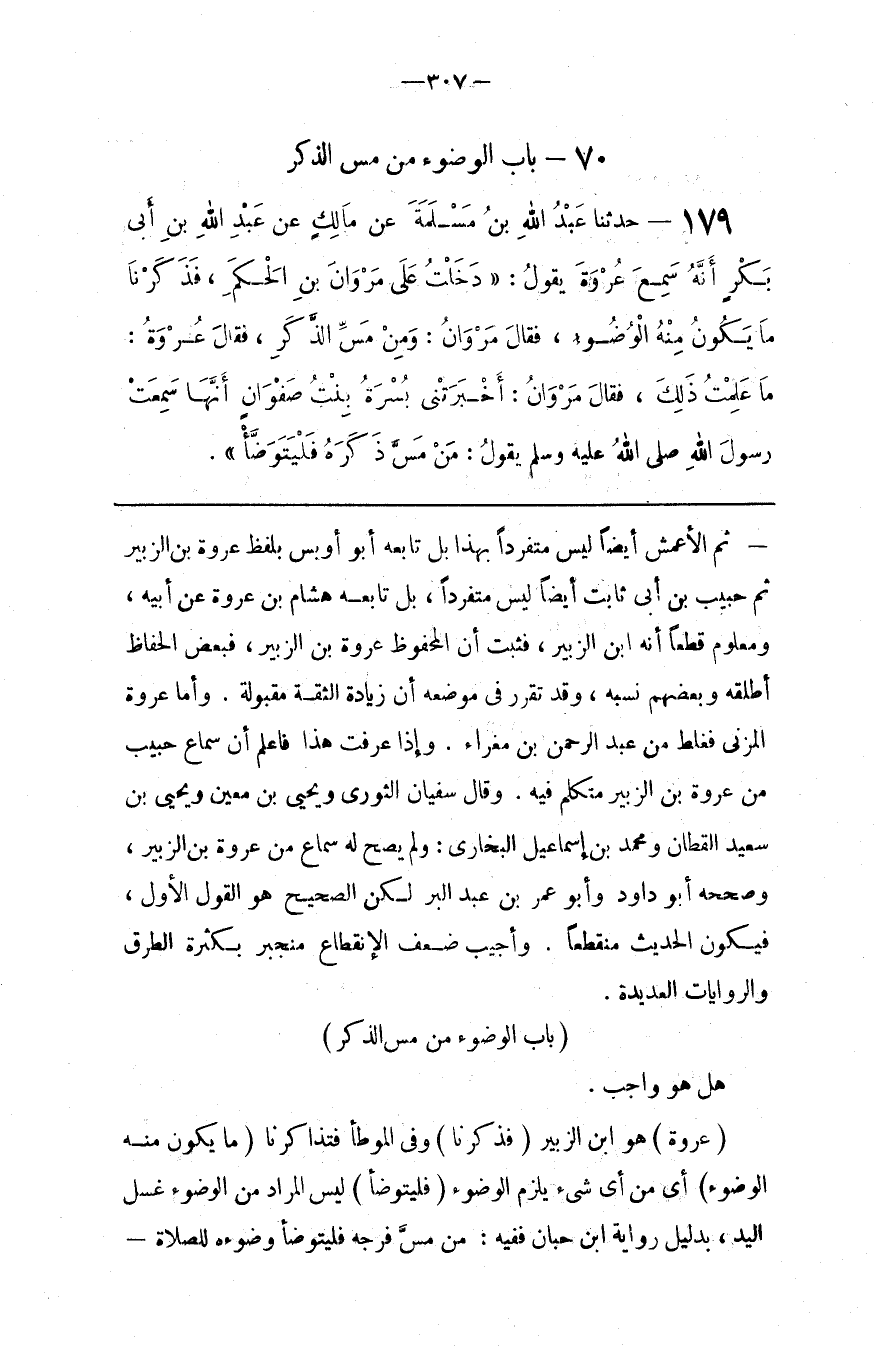 —٣٠٧—
٧٠ — باب الوضوء من مس الذكر
١٧٩ — حدثنا عَبْدُ اللهِ بنُ مَسْلَمَةَ عن مَالِكٍ عن عَبْدِ اللهِ بنِ أَبى
بَكْرٍ أَنَّهُ سَمِعَ عُرْوَةَ يقولُ : « دَخَلْتُ عَلَى مَرْوَانَ بنِ الحْكَمَ ِ، فَذَكَرْنَا
مَا يَكُونُ مِنْهُ الْوُضُوء ، فقالَ مَرْوَانُ : وَمِنْ مَسِّ الذَّكَرِ ، فقالَ عُرْوَةُ :
مَا عَلِمْتُ ذَلِكَ ، فقالَ مَرْوَانُ : أَخْبَرَتْنى بُسْرَةُ بِنْتُ صَفْوَانٍ أَنَّهَا سَمِعَتْ
رسولَ اللهِ صلى اللهُ عليه وسلم يقولُ : مَنْ مَسَّ ذَكَرَهُ فَلْيَتَوَضَّأْ » .
— ثم الأعمش أيضاً ليس متفرداً بهذا بل تابعه أبو أويس بلفظ عروة بن الزبير
ثم حبيب بن أبى ثابت أيضاً ليس متفرداً ، بل تابعه هشام بن عروة عن أبيه ،
ومعلوم قطعاً أنه ابن الزبير ، فثبت أن المحفوظ عروة بن الزبير ، فبعض الحفاظ
أطلقه وبعضهم نسبه ، وقد تقرر فى موضعه أن زيادة الثقة مقبولة . وأما عروة
المزنى فغلط من عبد الرحمن بن مغراء . وإذا عرفت هذا فاعلم أن سماع حبيب
من عروة بن الزبير متكلم فيه . وقال سفيان الثورى ويحيى بن معين ويحيى بن
سعيد القطان ومحمد بن إسماعيل البخارى : ولم يصح له سماع من عروة بن الزبير ،
وصححه أبو داود وأبو عمر بن عبد البر لكن الصحيح هو القول الأول ،
فيكون الحديث منقطعاً . وأجيب ضعف الإنقطاع منجبر بكثرة الطرق
والروايات العديدة .
( باب الوضوء من مس الذكر )
هل هو واجب .
( عروة ) هو ابن الزبير ( فذكرنا ) وفى الموطأ فتذاكرنا ( ما يكون منه
الوضوء) أى من أى شىء يلزم الوضوء ( فليتوضأ ) ليس المراد من الوضوء غسل
اليد ، بدليل رواية ابن حبان ففيه : من مسَّ فرجه فليتوضأ وضوءه للصلاة —